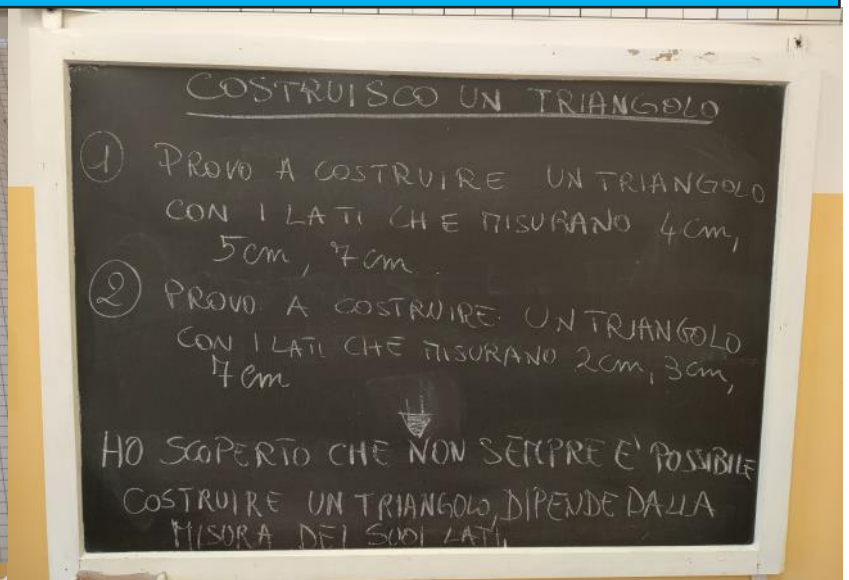 COSTRUISCO UN TRIANGOLO
1 PROVO A COSTRUIRE UN TRIANGOLO
CON I LATI CHE MISURANO 4 cm,
5 cm, 7 cm.
2 PROVO A COSTRUIRE UN TRIANGOLO
CON I LATI CHE MISURANO 2 cm, 3 cm,
7 cm
HO SCOPERTO CHE NON SEMPRE E' POSSIBILE
COSTRUIRE UN TRIANGOLO, DIPENDE DALLA
MISURA DEI SUOI LATI.